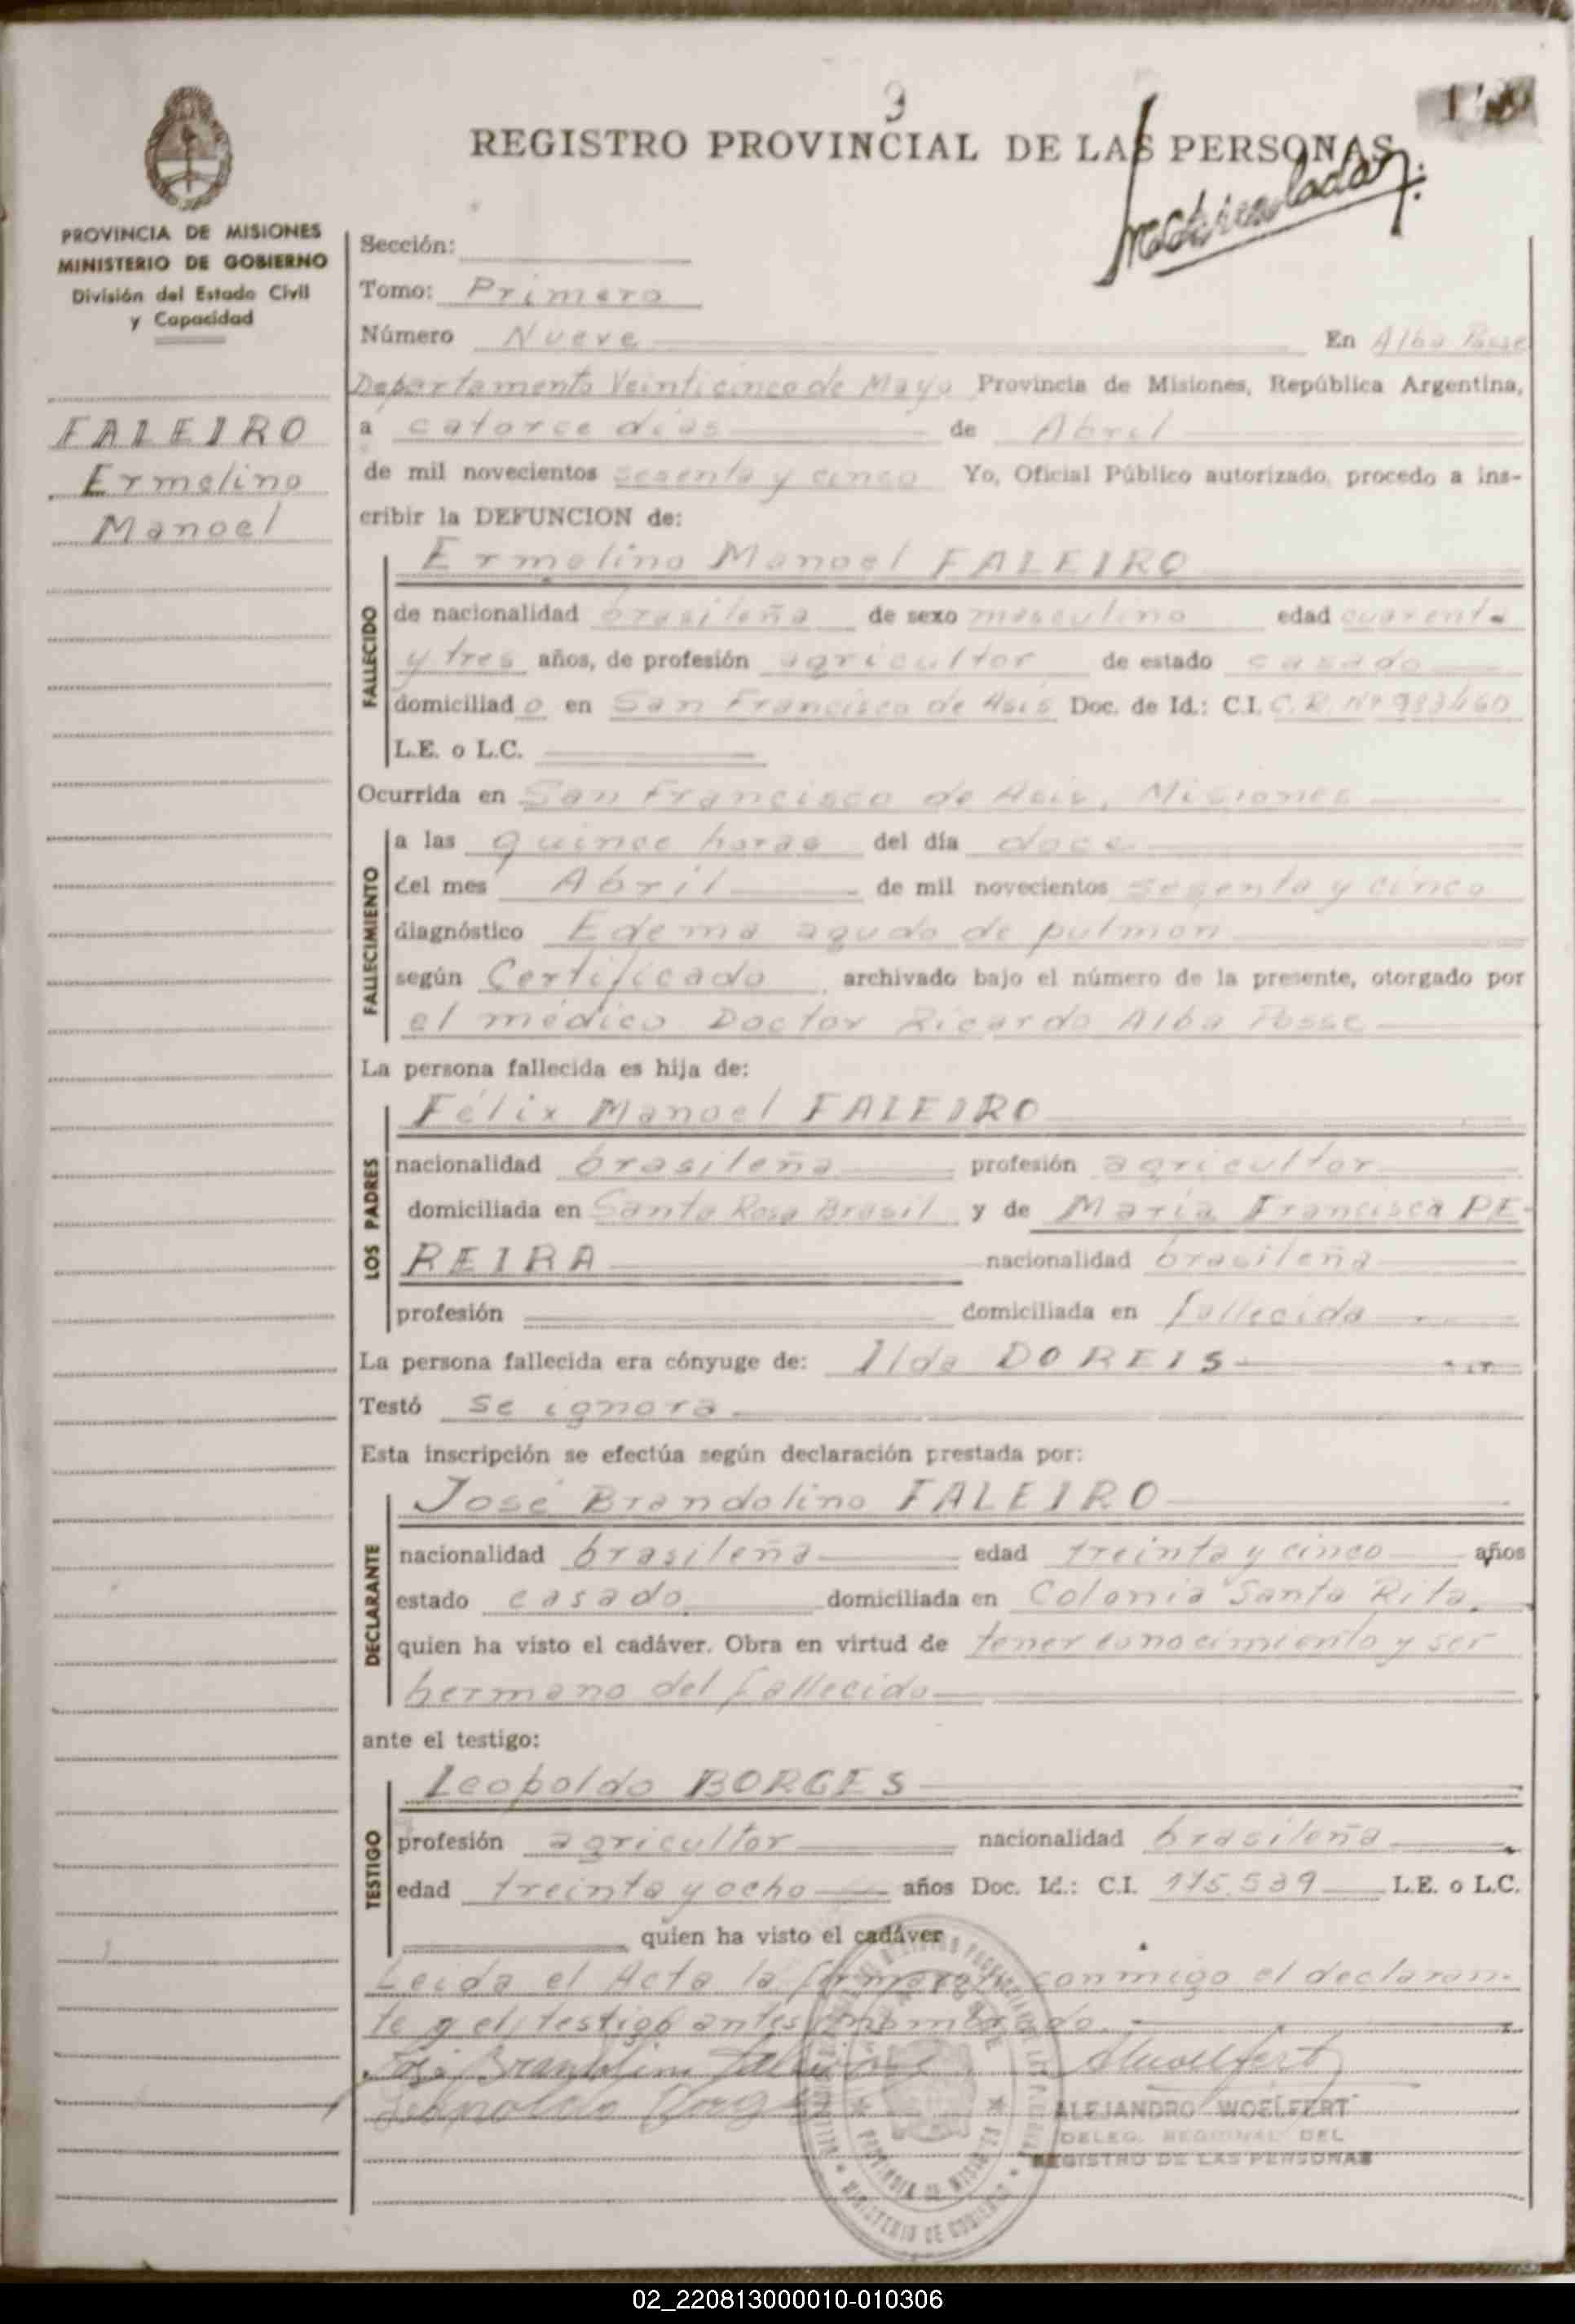 9
REGISTRO PROVINCIAL DE LAS PERSONAS
PROVINCIA DE MISIONES
MINISTERIO DE GOBIERNO
División del Estado Civil
y Capacidad
FALEIRO
Ermelino
Manoel
Sección:
Tomo: Primero
Número Nueve En Alba Posse
Departamento Veinticinco de Mayo Provincia de Misiones, República Argentina,
a catorce días de Abril
de mil novecientos sesenta y cinco Yo, Oficial Público autorizado, procedo a ins-
cribir la DEFUNCION de:
Ermelino Manoel FALEIRO
FALLECIDO
de nacionalidad brasileña de sexo masculino edad cuarenta
y tres años, de profesión agricultor de estado casado
domiciliado en San Francisco de Asís Doc. de Id.: C.I. C.R. Nº 983460
L.E. o L.C.
Ocurrida en San Francisco de Asis, Misiones
FALLECIMIENTO
a las quince horas del día doce
del mes Abril de mil novecientos sesenta y cinco
diagnóstico Edema agudo de pulmon
según Certificado, archivado bajo el número de la presente, otorgado por
el médico Doctor Ricardo Alba Posse
La persona fallecida es hija de:
Félix Manoel FALEIRO
LOS PADRES
nacionalidad brasileña profesión agricultor
domiciliada en Santa Rosa Brasil y de María Francisca PE-
REIRA nacionalidad brasileña
profesión domiciliada en fallecida
La persona fallecida era cónyuge de: Ilda DOREIS
Testó se ignora
Esta inscripción se efectúa según declaración prestada por:
José Brandolino FALEIRO
DECLARANTE
nacionalidad brasileña edad treinta y cinco años
estado casado domiciliada en Colonia Santa Rita,
quien ha visto el cadáver. Obra en virtud de tener conocimiento y ser
hermano del fallecido
ante el testigo:
Leopoldo BORGES
TESTIGO
profesión agricultor nacionalidad brasileña
edad treinta y ocho años Doc. Id.: C.I. 175.539 L.E. o L.C.
quien ha visto el cadáver
Leida el Acta la firmaron conmigo el declaran-
te y el testigo antes nombrado.
José Brandolino Faleiro
Leopoldo Borges
PROVINCIA DE MISIONES
MINISTERIO DE GOBIERNO
ALEJANDRO WOELFERT
DELEG. REGIONAL DEL
REGISTRO DE LAS PERSONAS
02_220813000010-010306